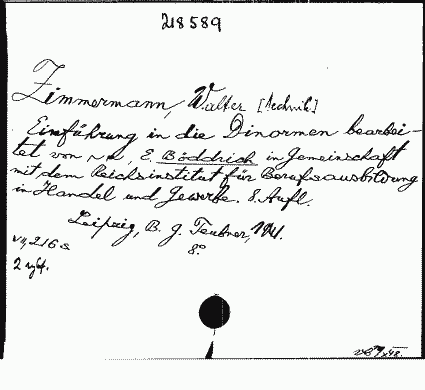 218589
Zimmermann, Walter [Technik]
Einführung in die Dinormen bearbei-
tet von ~ ~, E. Böddrich in Gemeinschaft
mit dem Reichsinstitut für Berufsausbildung
in Handel und Gewerbe. 8. Aufl.
Leipzig, B. G. Teubner, 1941.
8°
VII, 216 S
2